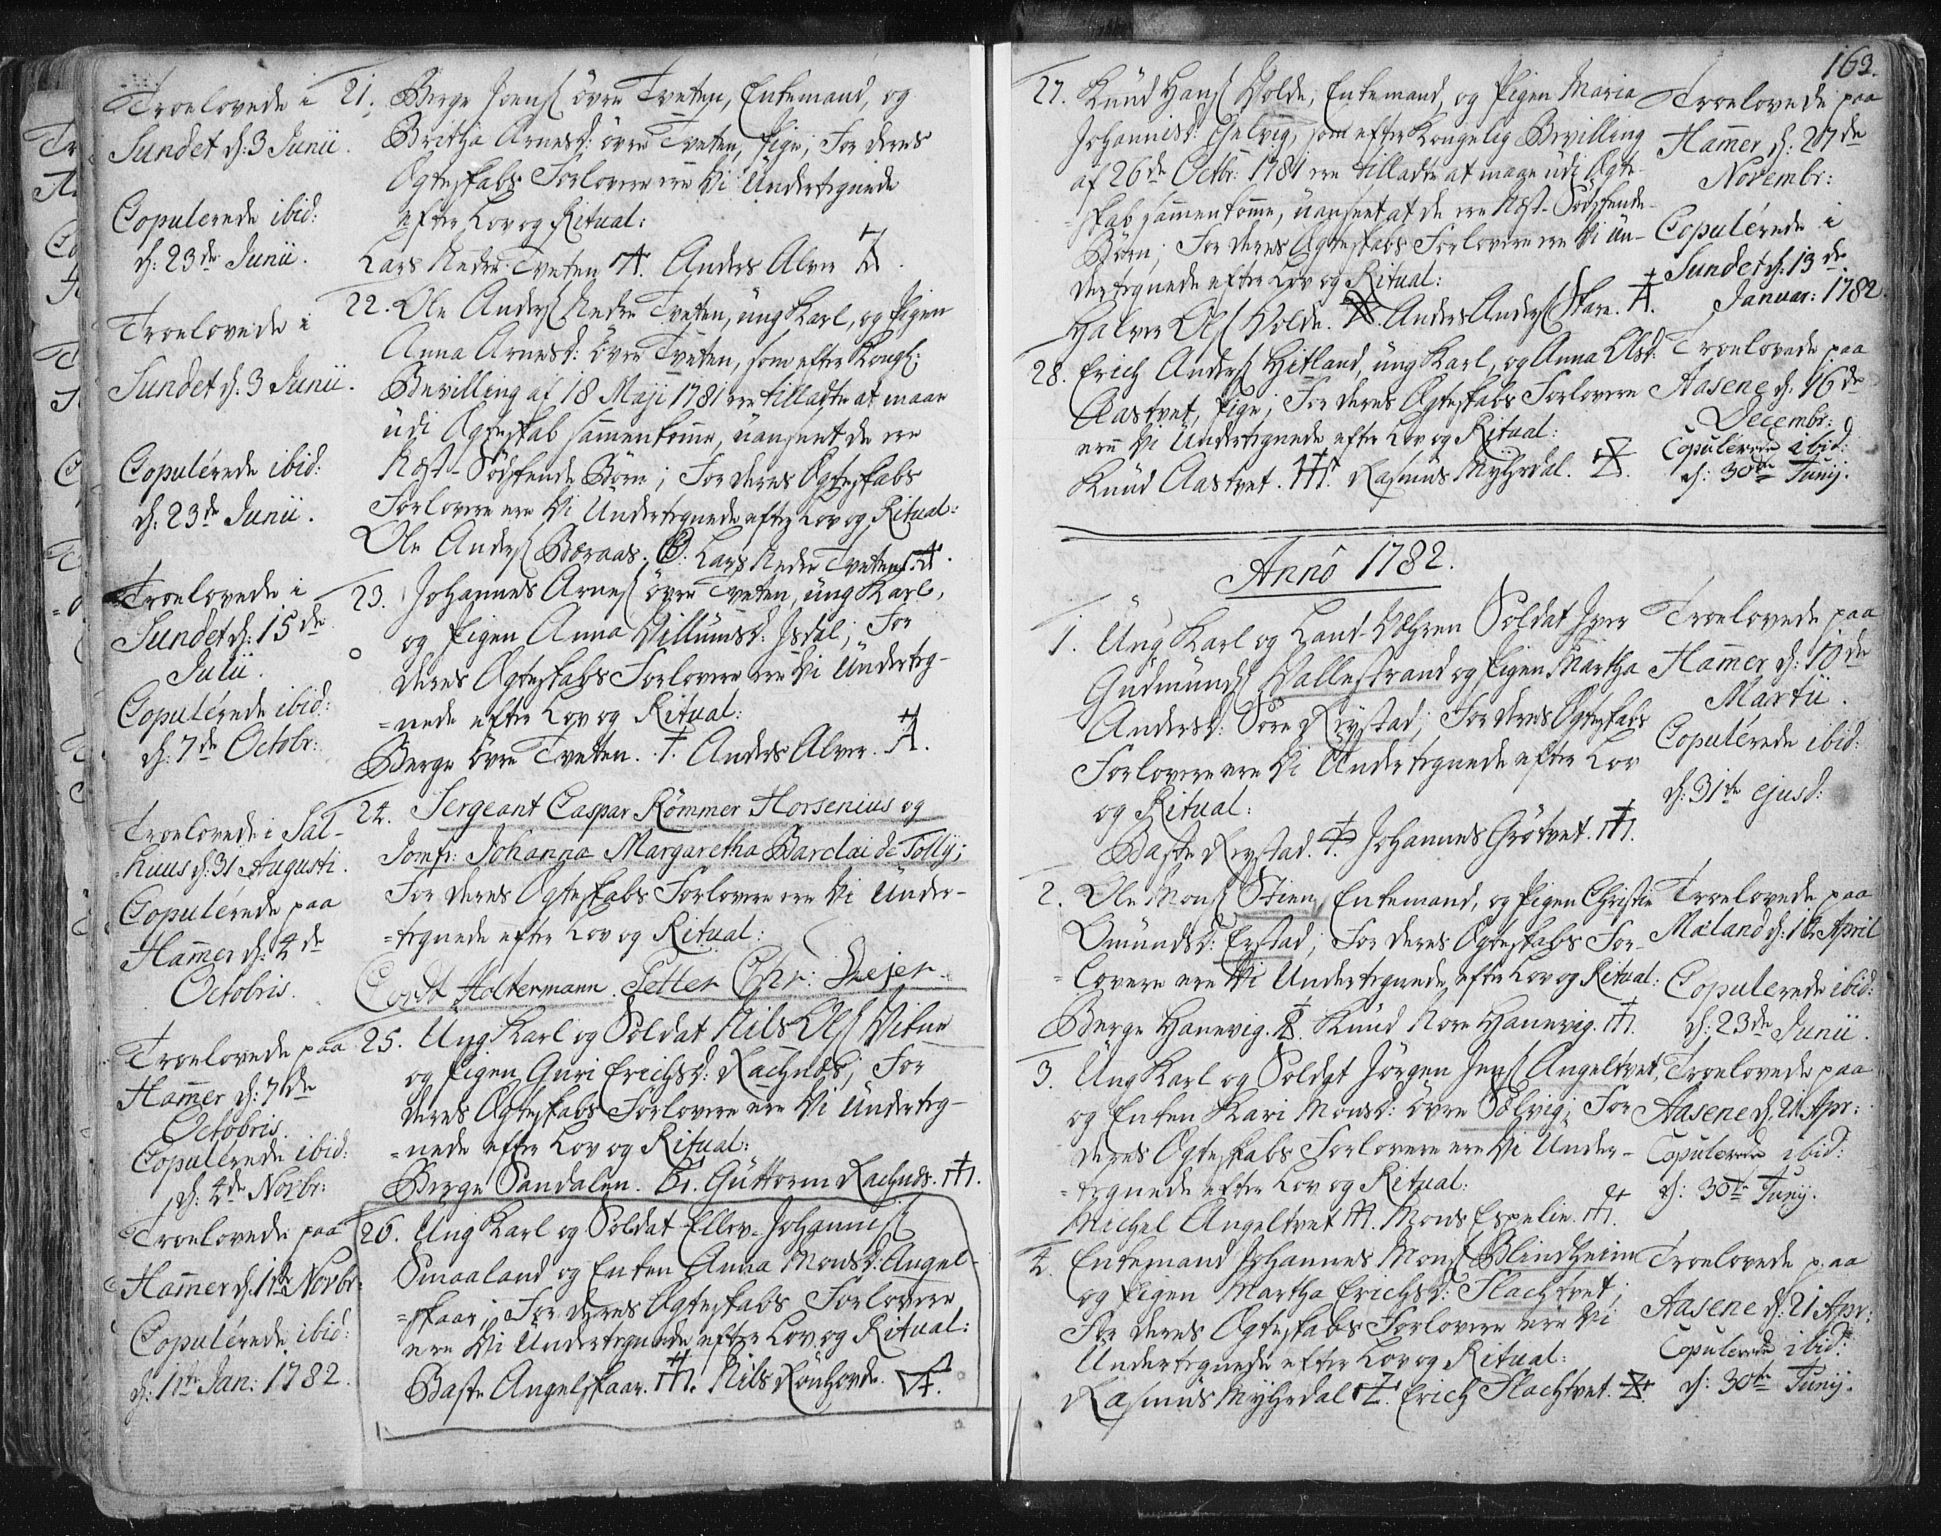 Troelovede i
Sundet d: 3 Junii.
Copulerede ibid:
d: 23de Junii.
21. Berge Joens: övre Tveten, Enkemand, og
Britha Arnesd: övre Tveten, Pige; For deres
Ægteskabs Forlovere ere Vi Undertegnede
efter Lov og Ritual:
Lars Nedre Tveten. Anders Alver.
Troelovede i
Sundet d: 3 Junii.
Copulérede ibid:
d: 23de Junii.
22. Ole Anders: Nedre Tveten, ung Karl, og Pigen
Anna Arnesd: övre Tveten, som efter Kongl:
Bevilling af 18 Maji 1781 ere tilladte at maae
udi Ægteskab sammenkomme, uanseet de ere
Næst-Södskende Börn; For deres Ægteskabs
Forlovere ere Vi Undertegnede efter Lov og Ritual:
Ole Anders: Boraas. Lars Nedre Tveten.
Troelovede i
Sundet d: 15de
Julii.
Copulérede ibid:
d: 7de Octobr:
23. Johannes Arnes: övre Tveten, ung Karl,
og Pigen Anna Villumsd: Isdal; For
deres Ægteskabs Forlovere ere Vi Underteg-
=nede efter Lov og Ritual:
Berge övre Tveten. Anders Alver.
Troelovede i Sal-
huus d: 31 Augusti.
Copulérede paa
Hammer d: 4de
Octobris.
24. Sergeant Caspar Römmer Horsenius og
Jomfr: Johanna Margaretha Barclai de Tolly;
For deres Ægteskabs Forlovere ere Vi Under-
=tegnede efter Lov og Ritual:
Cordt Holtermann. Petter Chr: Dreyer.
Troelovede paa
Hammer d: 7de
Octobris.
Copulerede ibid:
d: 4de Novbr:
25. Ung Karl og Soldat Nils Ols: Vikne
og Pigen Guri Erichsd: Rachnæs; For
deres Ægteskabs Forlovere ere Vi Underteg-
=nede efter Lov og Ritual:
Berge Sandalen. Guttorm Rachnæs.
Troelovede paa
Hammer d: 11te Novbr:
Copulérede ibid:
d: 1te Jan: 1782.
26. Ung Karl og Soldat Ellev Johannis:
Smaaland og Enken Anna Monsd: Angel-
=skaar; For deres Ægteskabs Forlovere
ere Vi Undertegnede efter Lov og Ritual:
Baste Angelskaar. Nils Rönhovde.
163.
27. Knud Hans: Volde, Enkemand, og Pigen Maria
Johannisd: Helvig, som efter Kongelig Bevilling
af 26de Octbr: 1781 ere tilladte at maae udi Ægte-
=skab sammenkomme, uanseet at de ere Næst-Södskende-
Börn; For deres Ægteskabs Forlovere ere Vi Un-
dertegnede efter Lov og Ritual:
Halvor Ols: Volde. Anders Anders: Skare.
Troelovede paa
Hammer d: 27de
Novembr:
Copulérede i
Sundet d: 13de
Januar: 1782.
28. Erich Anders: Hitland, ung Karl, og Anna Olsd:
Aastvet, Pige; For deres Ægteskabs Forlovere
ere Vi Undertegnede efter Lov og Ritual:
Knud Aastvet. Rasmus Myhrdal.
Troelovede paa
Aasene d: 16de
Decembr:
Copulérede ibid:
d: 30te Junij.
Anno 1782.
1. Ung Karl og Land-Væhren Soldat Iver
Gudmunds: Vallestrand og Pigen Martha
Andersd: Sore Röystad; For deres Ægteskabs
Forlovere ere Vi Undertegnede efter Lov
og Ritual:
Baste Reystad. Johannes Grötvet.
Troelovede paa
Hammer d: 10de
Martii.
Copulérede ibid:
d: 31te ejusd:
2. Ole Mons: Stien, Enkemand, og Pigen Christie
Omundsd: Erstad; For deres Ægteskabs For-
=lovere ere Vi Undertegnede efter Lov og Ritual:
Berge Hanevig. Knud Nore Hanevig.
Troelovede paa
Mæland d: 1te April
Copulerede ibid:
d: 23de Junii.
3. Ung Karl og Soldat Jörgen Jens: Angeltvet,
og Enken Kari Monsd: övre Sölvig; For
deres Ægteskabs Forlovere ere Vi Under-
=tegnede efter Lov og Ritual:
Michel Angeltvet. Mons Espelie.
Troelovede paa
Aasene d: 21 Apr:
Copulerede ibid:
d: 30te Junij.
4. Enkemand Johannes Mons: Blindheim
og Pigen Martha Erichsd: Flachtvet;
For deres Ægteskabs Forlovere ere Vi
Undertegnede efter Lov og Ritual:
Rasmus Myhrdal. Erich Flachtvet.
Troelovede paa
Aasene d: 21 Apr:
Copulerede ibid:
d: 30te Junij.